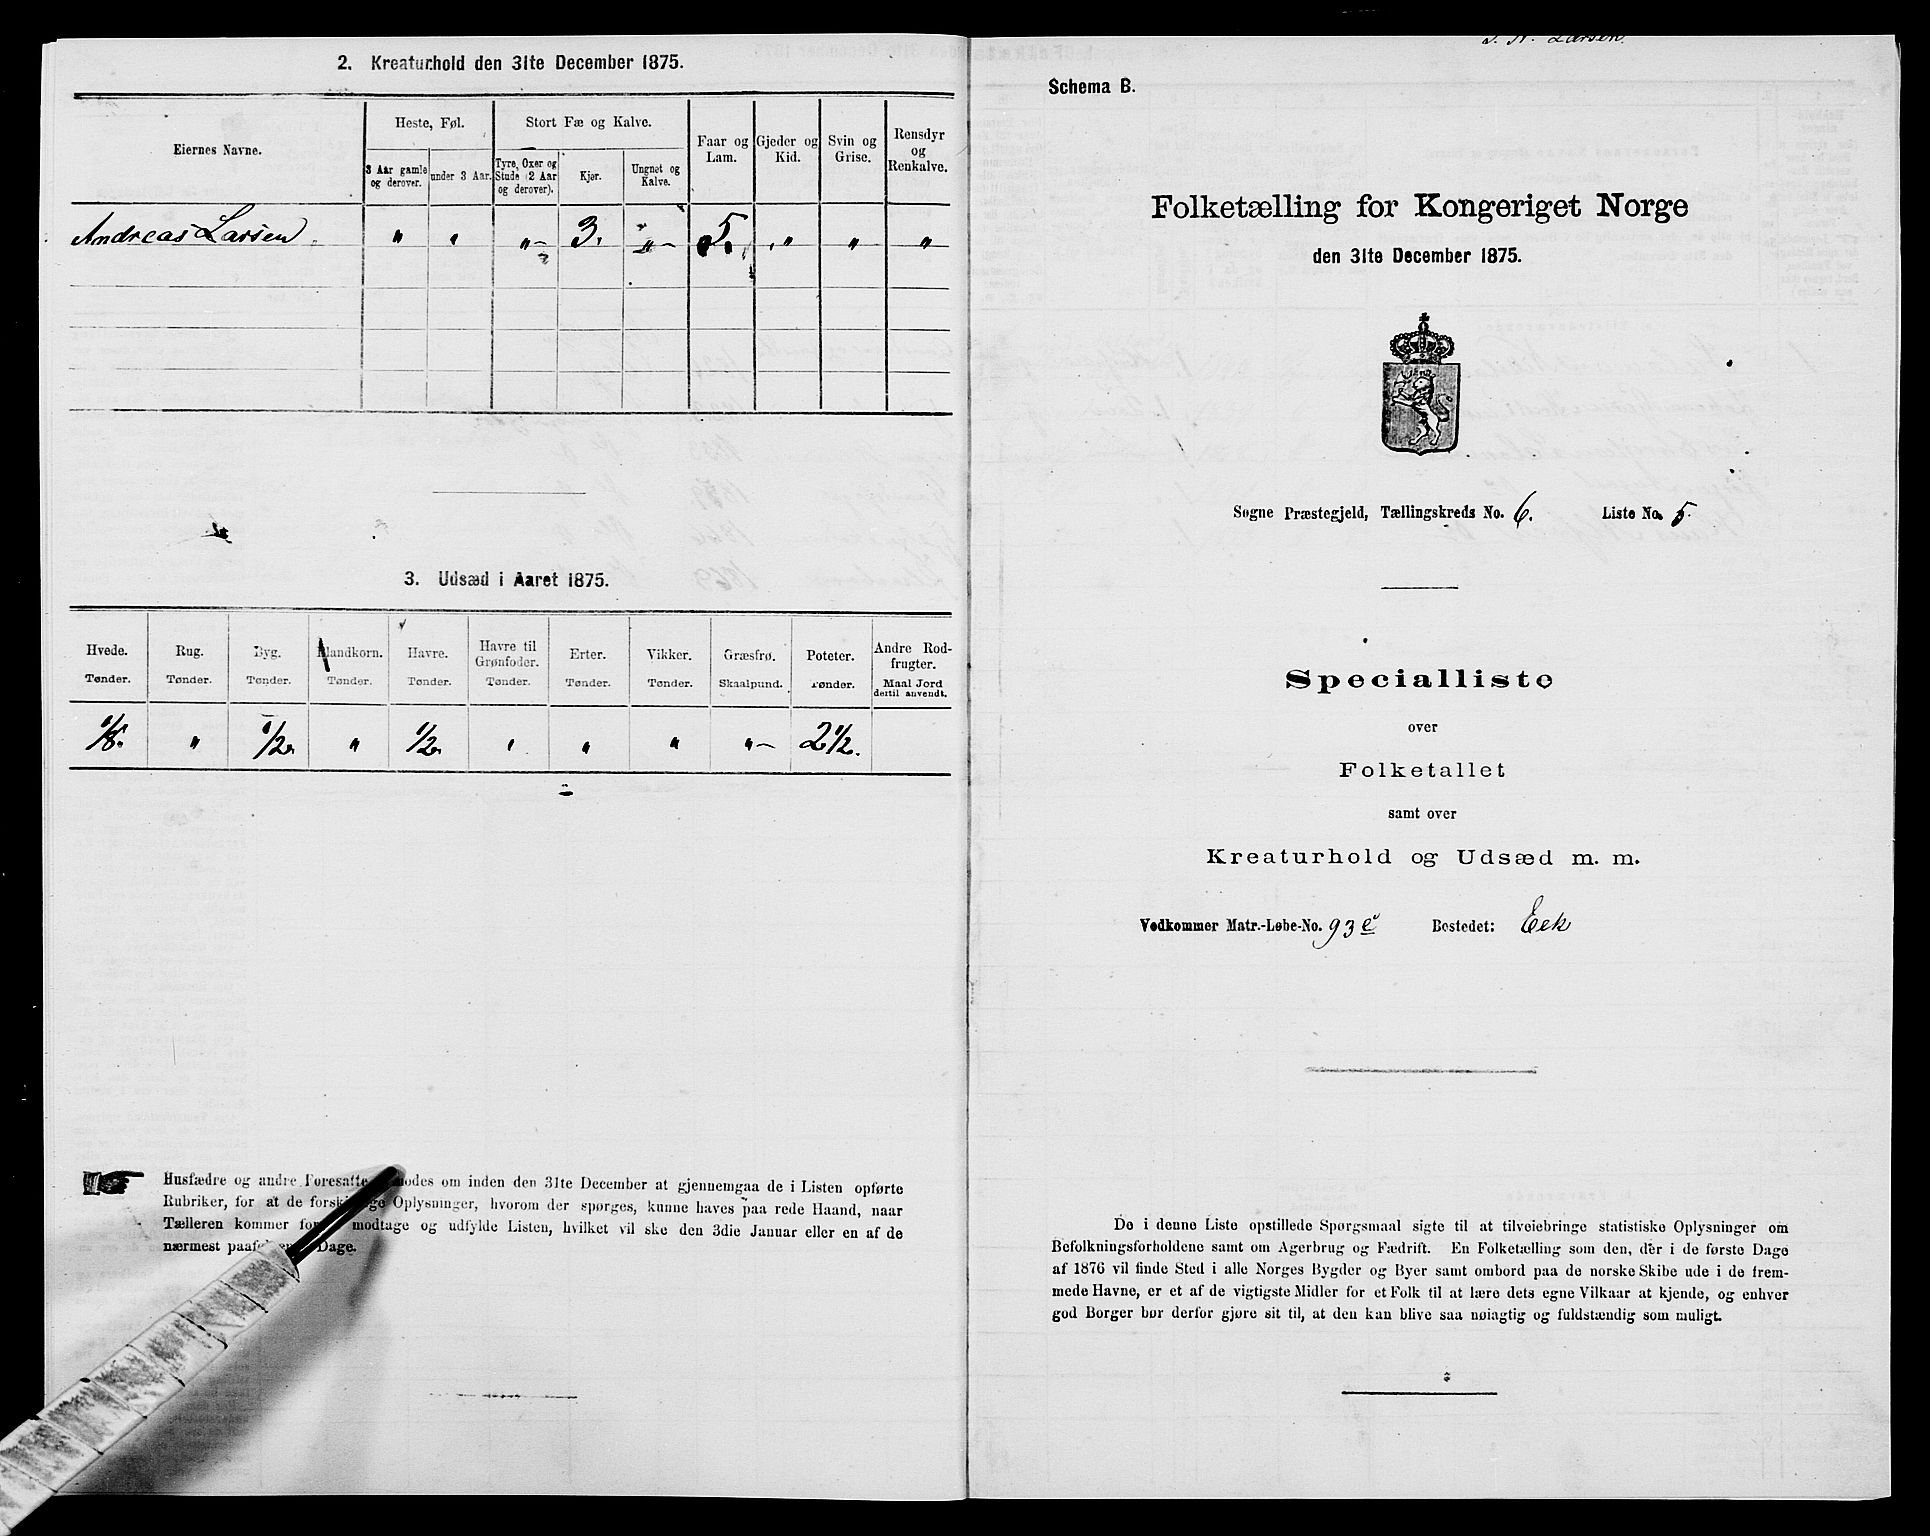 2. Kreaturhold den 31te December 1875.
Eiernes Navne.
Heste, Føl.
Stort Fæ og Kalve.
Faar og Lam.
Gjeder og Kid.
Svin og Grise.
Rensdyr og Renkalve.
3 Aar gamle og derover.
under 3 Aar.
Tyre, Oxer og Stude (2 Aar og derover).
Kjør.
Ungnøt og Kalve.
Andreas Larsen. " " "- 3. "- 5. " " "
3. Udsæd i Aaret 1875.
Hvede. Rug. Byg. Blandkorn. Havre. Havre til Grønfoder. Erter. Vikker. Græsfrø. Poteter. Andre Rodfrugter.
Tønder. Tønder. Tønder. Tønder. Tønder. Tønder. Tønder. Tønder. Skaalpund. Tønder. Maal Jord dertil anvendt.
1/8. " 1/2. " 1/2. " " " "- 2 1/2.
Husfædre og andre Foresatte modes om inden den 31te December at gjennemgaa de i Listen opførte
Rubriker, for at de forskj ge Oplysninger, hvorom der spørges, kunne haves paa rede Haand, naar
Tælleren kommer for modtage og udfylde Listen, hvilket vil ske den 3die Januar eller en af de
nærmest paaf en Dage.
Larsen.
Schema B.
Folketælling for Kongeriget Norge
den 31te December 1875.
Sogne Præstegjeld, Tællingskreds No. 6. Liste No. 5.
Specialliste
over
Folketallet
samt over
Kreaturhold og Udsæd m. m.
Vedkommer Matr.-Løbe-No. 93e Bostedet: Eek
De i denne Liste opstillede Spørgsmaal sigte til at tilveiebringe statistiske Oplysninger om
Befolkningsforholdene samt om Agerbrug og Fædrift. En Folketælling som den, der i de første Dage
af 1876 vil finde Sted i alle Norges Bygder og Byer samt ombord paa de norske Skibe ude i de frem-
mede Havne, er et af de vigtigste Midler for et Folk til at lære dets egne Vilkaar at kjende, og enhver
god Borger bør derfor gjøre sit til, at den kan blive saa nøiagtig og fuldstændig som muligt.